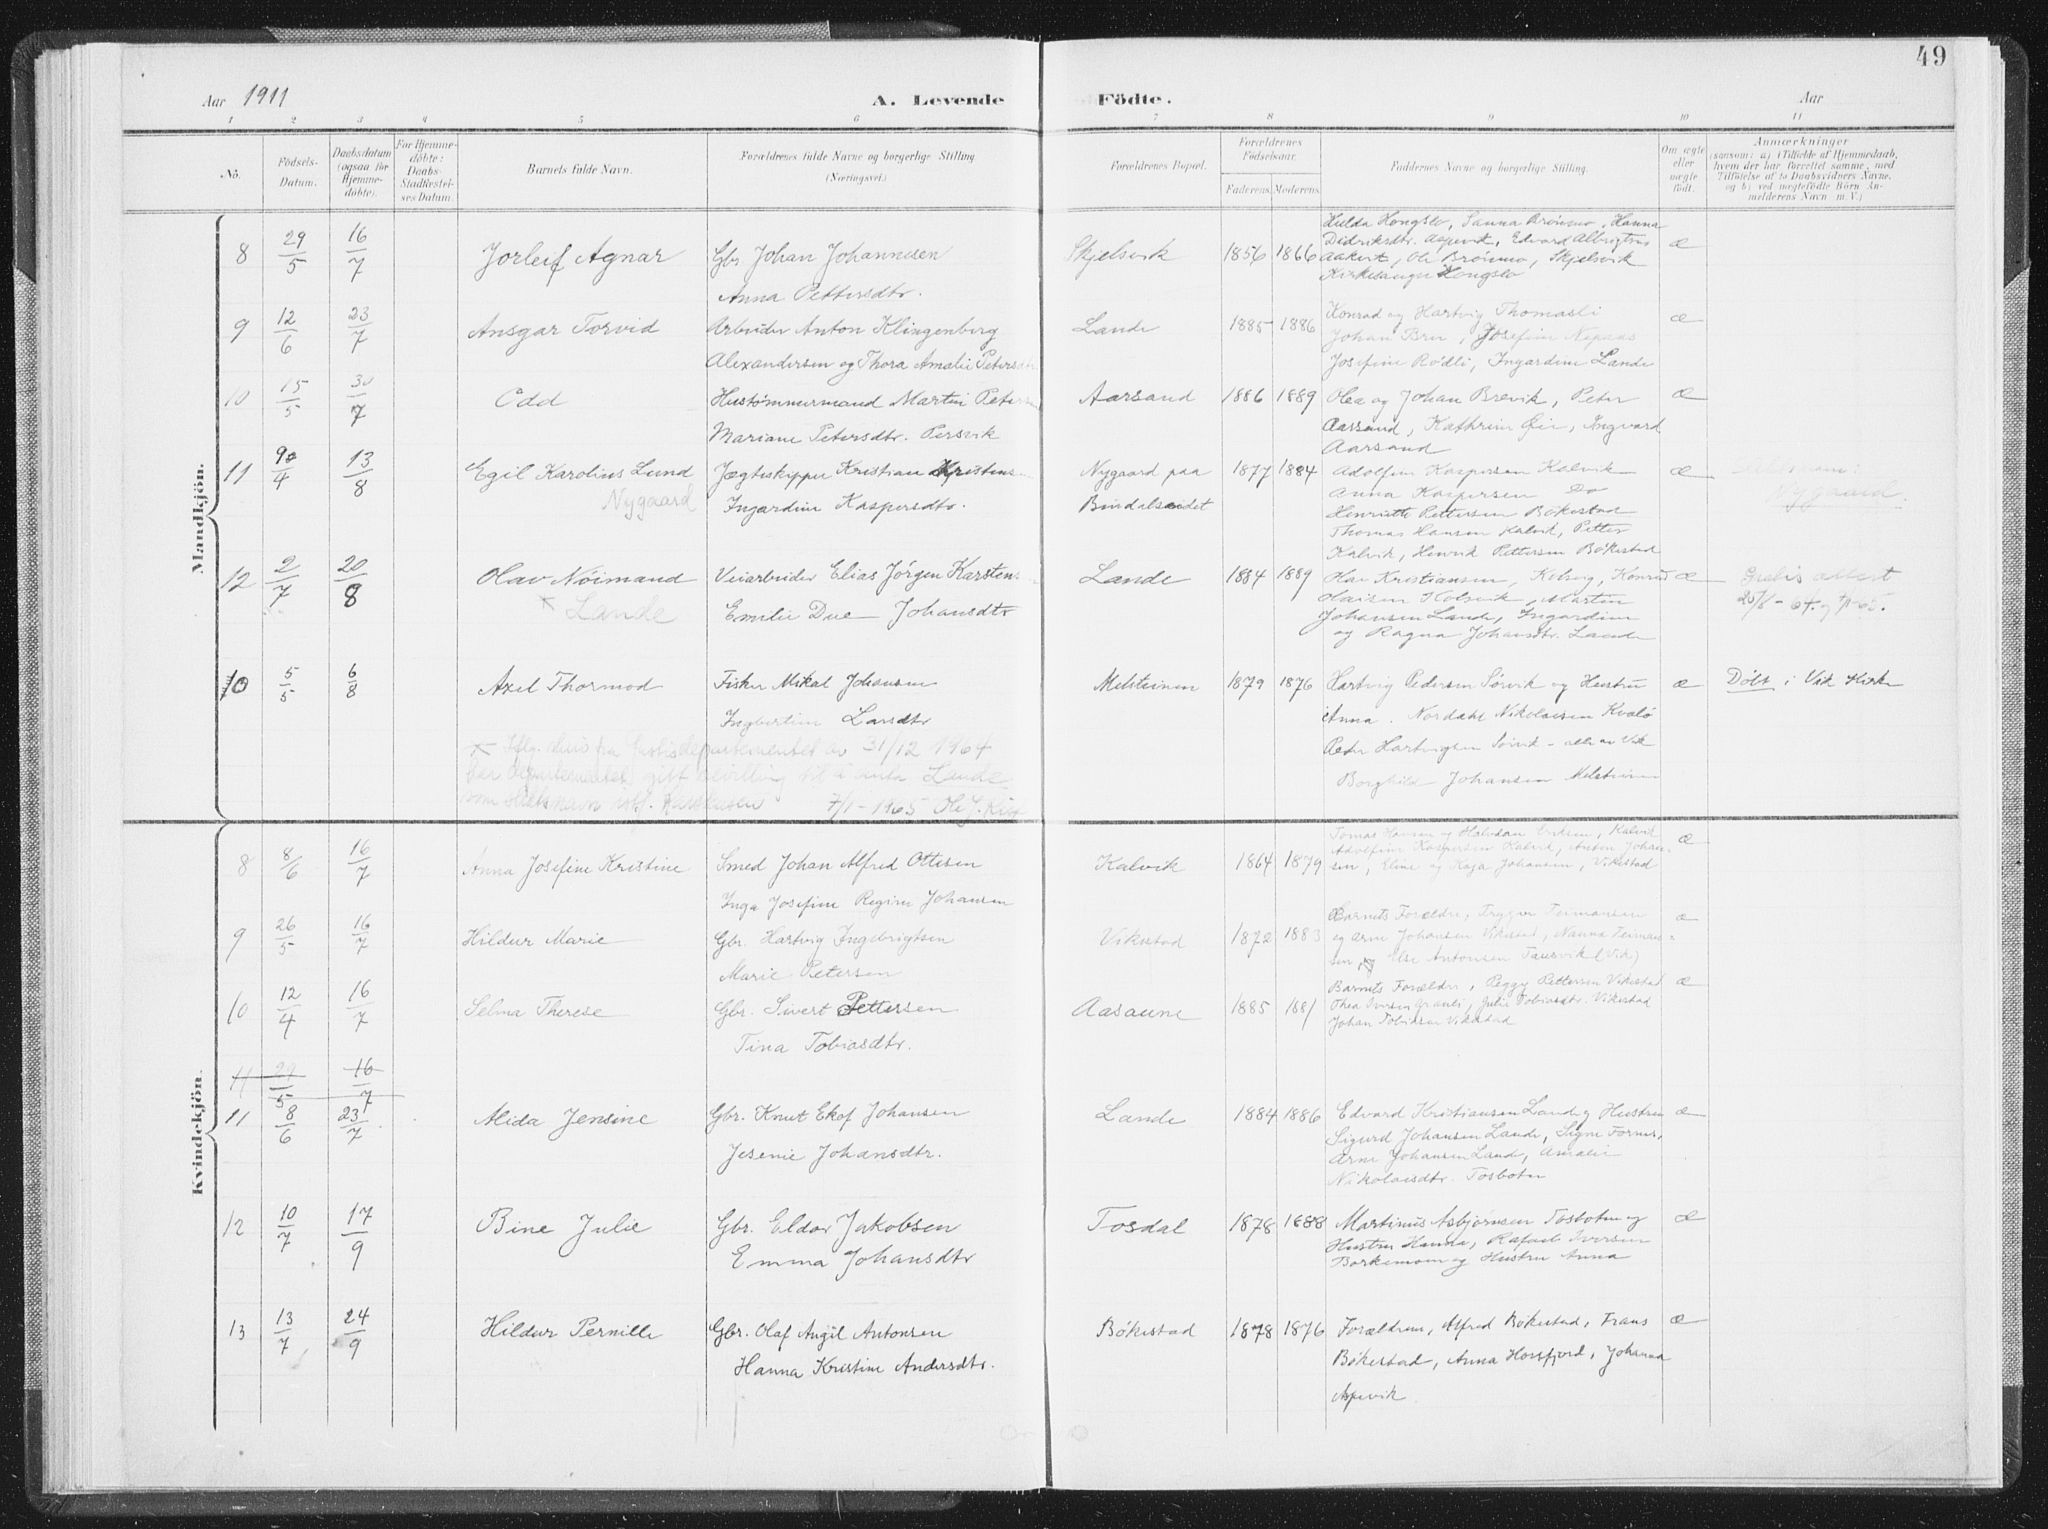 49
Aar 1911
A. Levende Födte.
Aar
1 2 3 4 5 6 7 8 9 10 11
No.
Födsels-Datum.
Daabsdatum (ogsaa for Hjemmedöbte).
For Hjemmedöbte: Daabs-Stadfæstelses Datum.
Barnets fulde Navn.
Forældrenes fulde Navne og borgerlige Stilling.
(Næringsvei.)
Forældrenes Bopæl.
Forældrenes Födselsaar.
Faderens. Moderens.
Faddernes Navne og borgerlige Stilling.
Om ægte eller uægte födt.
Anmærkninger
(saasom: a) i Tilfælde af Hjemmedaab, hvem der har forrettet samme, med Tilföielse af to Daabsvidners Navne, og b) ved uægtefödte Börn Anmelderens Navn m. V.)
Mandkjön.
8 29/5 16/7 Jorleif Agnar Gbr Johan Johannesen Skjelsvik 1856 1866 æ
Anna Pettersdtr.
Hulda Hongslo, Sanna Brönmo, Hanna
Didriksdtr. Aspevik, Edvard Albrigtsen
Aakvik, Ole Brönmo, Skjelsvik
Kirkesanger Hongslo
9 12/6 23/7 Ansgar Torvid Arbeider Anton Klingenberg Lande 1885 1886 æ
Alexandersen og Thora Amalie Petersdtr
Konrad og Hartvig Thomasli
Johan Bru, Josefine Nepaas
Josefine Rødli, Ingardine Lande
10 15/5 30/7 Odd Hustømmermand Martin Petersen Aarsand 1886 1889 æ
Mariane Petersdtr. Persvik
Olea og Johan Brevik, Peter
Aarsand, Kathrine Øie, Ingvard
Aarsand
11 9/4 13/8 Egil Karolius Lund Jægtskipper Kristian Kristens Nygaard paa 1877 1884 æ
Nygaard Ingardine Kaspersdtr. Bindalseidet
Adolfine Kaspersen Kalvik
Anna Kaspersen Do
Henriette Pettersen Bökestad
Thomas Hansen Kalvik, Petter
Kalvik, Henrik Pettersen Bökestad
Nygaard.
12 2/7 20/8 Olav Nöimand Veiarbeider Elias Jörgen Karstens Lande 1884 1889 æ
× Lande Emilie Due Johansdtr
Olav Kristiansen, Kolsvig, Konrad
Olaisen Kolsvik, Martin
Johansen Lande, Ingardine
og Ragna Johansdtr. Lande
Gratis attest
20/8-64. og 7/1-65.
10 5/5 6/8 Axel Thormod Fisker Mikal Johansen Melsteinen 1879 1876 æ Döbt i Vik Kirke
Ingbertine Larsdtr
Hartvig Pedersen Sörvik og Hustru
Anna. Nordahl Nikolaisen Kvalö
Peter Hartvigsen Sörvik - alle av Vik
Borghild Johansen Melsteinen
× Iflg. skriv fra Justisdepartementet av 31/12 1964
har departementet gitt bevilling til å anta Lande
som slektsnavn istf. Karstensen 7/1-1965 Ole J.
Kvindekjön.
8 8/6 16/7 Anna Josefine Kristine Smed Johan Alfred Ottesen Kalvik 1864 1879 æ
Inga Josefine Regine Johansen
Tomas Hansen og Halvdan Eriksen, Kalvik
Adolfine Kaspersen Kalvik, Anton Johan-
sen, Eline og Kaja Johansen, Vikestad
9 26/5 16/7 Hildur Marie Gbr. Hartvig Ingebrigtsen Vikestad 1872 1883 æ
Marie Petersen
Barnets Forældre, Trygve Teimansen
og Arne Johansen Vikestad, Nanna Teiman-
sen, og Else Antonsen Tausvik (Vik)
10 12/4 16/7 Selma Therese Gbr. Sivert Pettersen Aasaune 1885 1881 æ
Tina Tobiasdtr.
Barnets Forældre, Peggy Pettersen Vikestad
Thea Iversen Granli, Julie Tobiasdtr. Vikestad
Johan Tobiasen Vikestad
11 29/5 16/7
11 8/6 23/7 Alida Jensine Gbr. Knut Ekof Johansen Lande 1884 1886 æ
Jesenie Johansdtr.
Edvard Kristiansen Lande og Hustru
Sigurd Johansen Lande, Signe Fornes,
Arne Johansen Lande, Amalie
Nikolaisdtr. Tosbotn
12 10/7 17/9 Bine Julie Gbr. Eldor Jakobsen Tosdal 1878 1888 æ
Emma Johansdtr
Martinus Asbjörnsen Tosbotn og
Hustru Hanna, Rafael Iversen
Borkemoen og Hustru Anna
13 13/7 24/9 Hildur Pernille Gbr. Olaf Angil Antonsen Bökestad 1878 1876 æ
Hanna Kristine Andersdtr.
Forældrene, Alfred Bökestad, Frans
Bökestad, Anna Horsfjord, Johanna
Aspevik